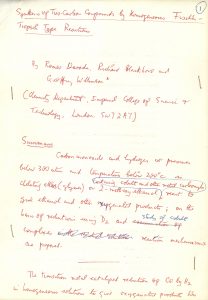 1
Synthesis of Two-Carbon Compounds by Homogeneous Fischer-
Tropsch Type Reactions
By Romeo Daroda, Richard Blackborow and
Geoffrey Wilkinson*
(Chemistry Department, Imperial College of Science &
Technology, London SW7 2AY)
Summary
Carbon monoxide and hydrogen at pressures
below 300 atm and temperatures below 200°C in
glycol and other oxygenate products; on the
basis of reductions using D2 and study of cobalt
complexes reaction mechanisms
are proposed.
The transition metal catalysed reduction of CO by H2
in homogeneous solution to give oxygenate products